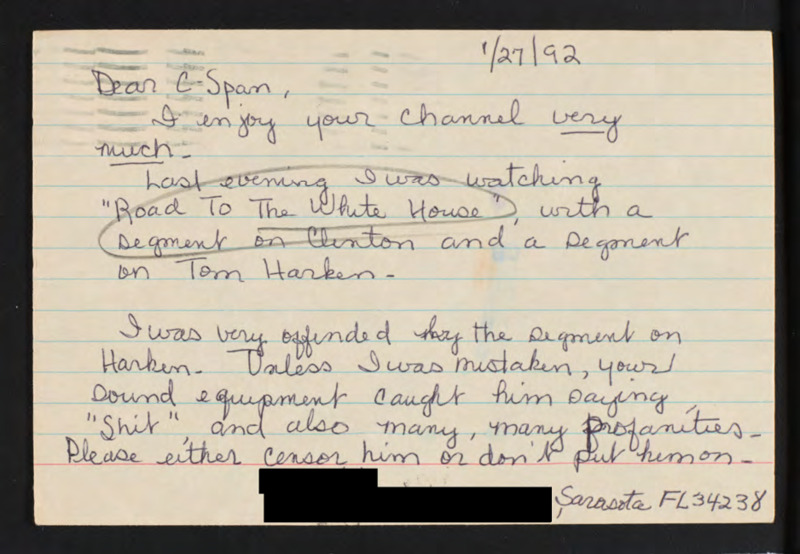 1/27/92
Dear C-Span,
I enjoy your channel very
much.
Last evening I was watching
"Road To The White House", with a
segment on Clinton and a segment
on Tom Harken.
I was very offended by the segment on
Harken. Unless I was mistaken, your
sound equipment caught him saying,
"Shit", and also many, many profanities.
Please either censor him or don't put him on.
Sarasota FL 34238